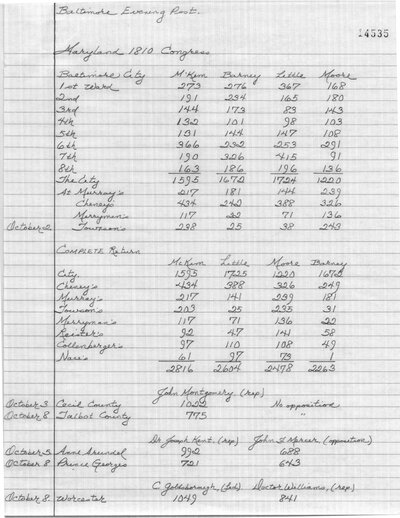 Baltimore Evening Post.
14535
Maryland 1810 Congress
Baltimore City M'Kim Barney Little Moore
1st Ward 273 276 367 168
2nd 191 234 165 180
3rd 144 173 83 143
4th 132 101 98 103
5th 131 144 147 108
6th 366 232 253 291
7th 190 326 415 91
8th 163 186 196 136
The City 1595 1672 1724 1220
At Murray's 217 181 144 239
Cheneys 434 242 388 326
Merryman's 117 22 71 136
October 2 Towson's 238 25 38 243
Complete Return
McKim Little Moore Barney
City 1595 1725 1220 1672
Cheney's 434 388 326 249
Murray's 217 141 239 181
Towson's 203 25 235 31
Merryman's 117 71 136 22
Reister's 92 47 141 58
Gollenberger's 97 110 108 49
Nace's 61 97 73 1
2816 2604 2478 2263
John Montgomery (rep)
October 3 Cecil County 1022 No opposition
October 8 Talbot County 775 "
Dr Joseph Kent. (rep) John F Mercer (opposition)
October 5 Anne Arundel 992 688
October 8 Prince Georges 721 643
C. Goldsborough, (fed) Doctor Williams, (rep)
October 8 Worcester 1049 841